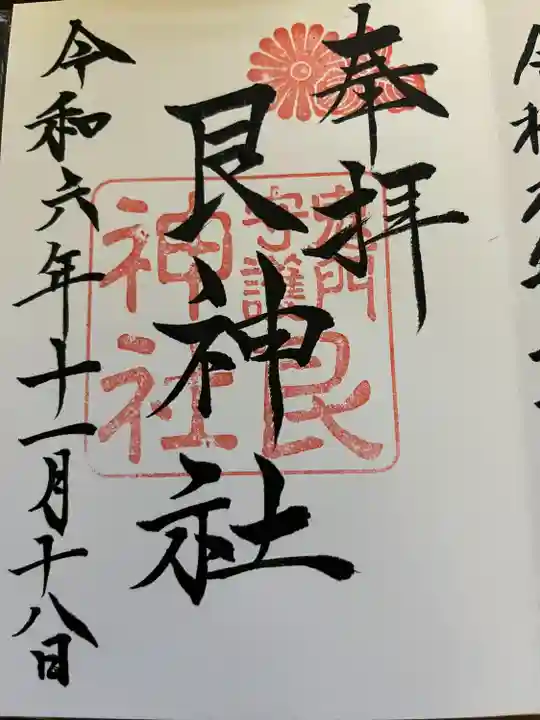 奉拝
艮神社
鬼門
守護
艮
神社
令和六年十一月十八日
令和六年十